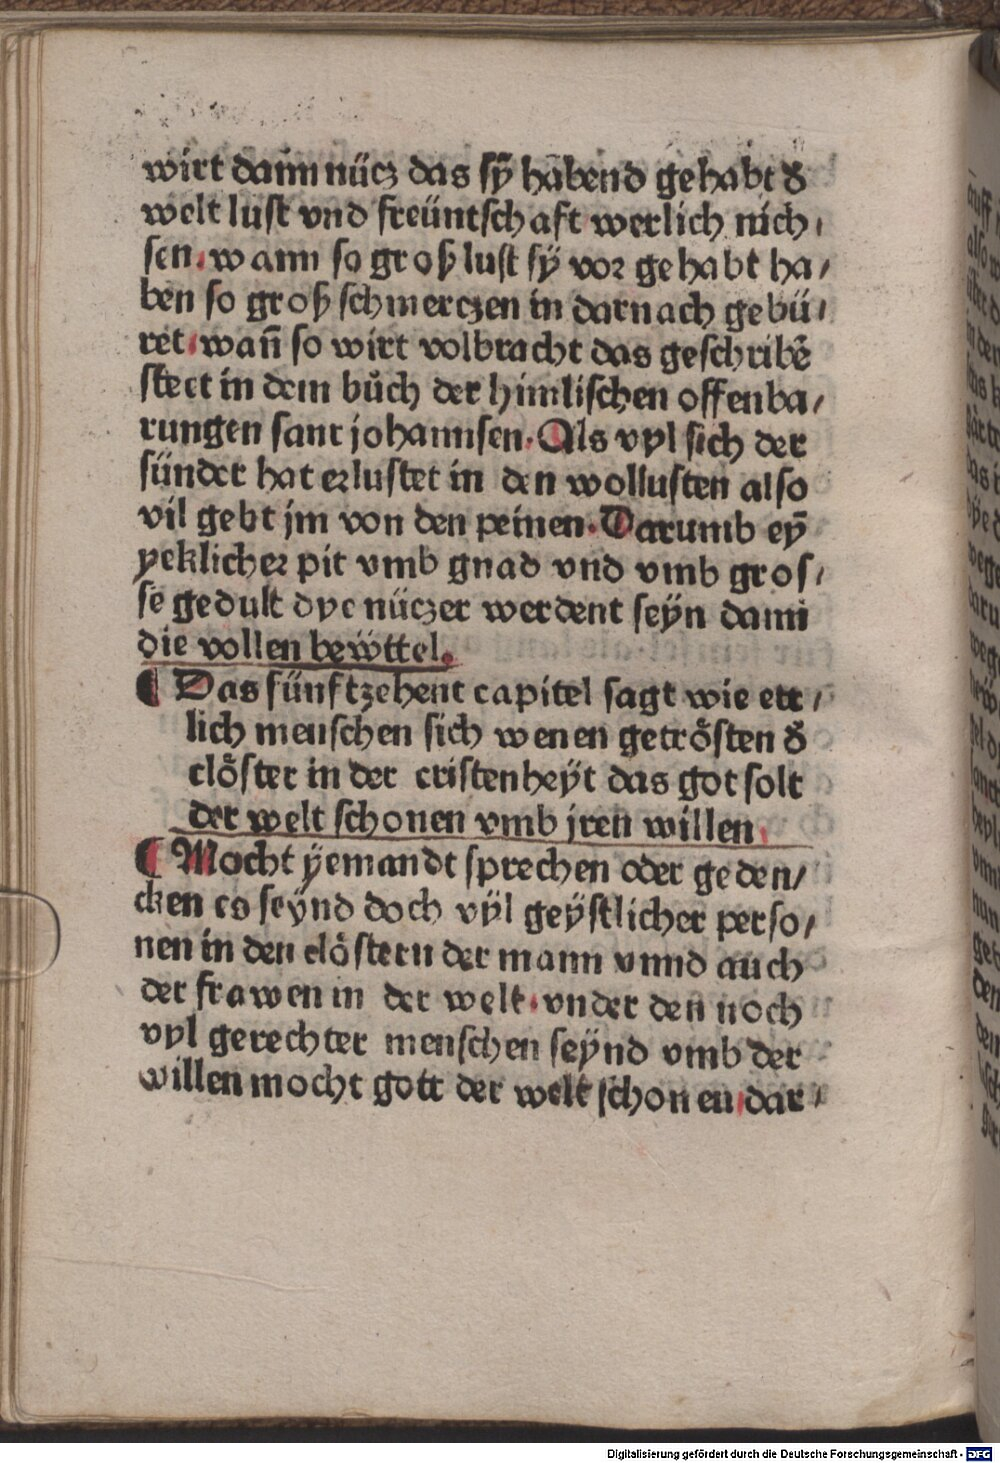 wirt dann nücz das sy̋ habend gehabt ð
welt lust vnd freüntschaft werlich nich,
sen. wann so groß lust sy̋ vor gehabt ha/
ben so groß schmerczen in darnach gebü/
ret. wañ so wirt volbracht das geschribẽ
steet in dem bůch der himlischen offenba/
rungen sant johannsen. Als vyl sich der
sünder hat erlustet in den wollusten also
vil gebt jm von den peinen. Darumb eyñ
yeklicher pit vmb gnad vnd vmb gros/
se gedult dye nüczer werdent seÿn dann
die vollen bewÿttel.
¶ Das fünftzehent capitel sagt wie ett/
lich menschen sich wenen getrösten ð
clöster in der cristenheÿt das got solt
der welt schonen vmb jren willen.
¶ Mocht ÿemandt sprechen oder geden/
cken es seÿnd doch vÿl geÿstlicher perso/
nen in den clöstern der mann vnnd auch
der frawen in der welt. vnder den noch
vyl gerechter menschen seÿnd vmb der
willen mocht gott der welt schonen. dar/
Digitalisierung gefördert durch die Deutsche Forschungsgemeinschaft - DFG